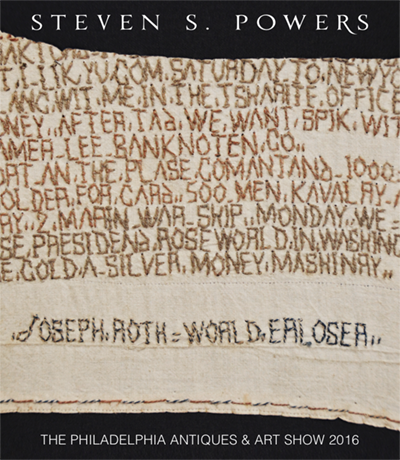 STEVEN S. POWERS
T.I.IK,YU,COM,SATURDAY,TO,NEWYO
WIT,ME,IN,THE,TSHARITE,OFFICE
ONEY,,AFTER,TAD,WE,WANT,SPIK,WIT
AMER,LEE,BANKNOTEN,CO,,
AN,THE,PLASE,COMANTAND,1000=
OLDER,FOR,GARD,,500,MEN,KAVALRY,A
AY,,2,MARIN,WAR,SHIP,,MONDAY,WE
SE,PRESIDEND,ROSEWORLD,IN,WASHING
E,GOLD,A,SILVER,MONEY,MASHINAY,,
,JOSEPH,ROTH=WORLD,ERLOSER,,
THE PHILADELPHIA ANTIQUES & ART SHOW 2016